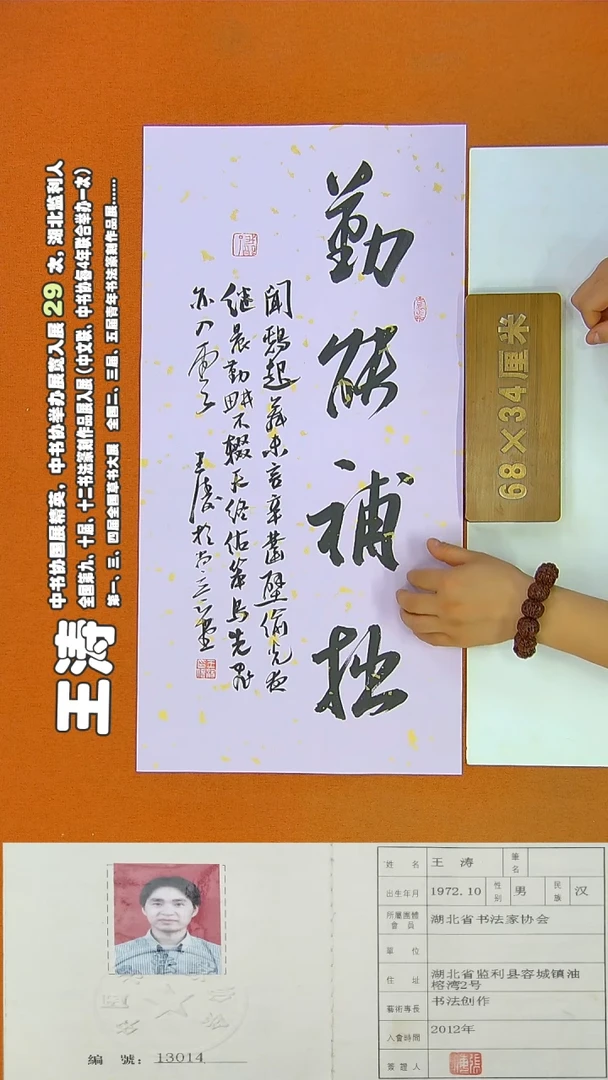 王涛
中书协国展精英，中书协举办展览入展 29 次，湖北监利人
全国第九、十届、十二书法篆刻作品展入展（中文联、中书协每4年联合举办一次）
第一、三、四届全国条书大展 全国二、三届、五届青年书法篆刻作品展......
勤能補拙
聞鷄起舞未言辛鑿壁偷光夜
继晷勤耕不辍天终佑笨鸟先飛
亦入雲
王涛
68×34厘米
編 號：13014
姓 名 王 涛 筆名
出生年月 1972.10 性别 男 民族 汉
所屬團體會員 湖北省书法家协会
單 位
住 址 湖北省监利县容城镇油榨湾2号
藝術專長 书法创作
入會時間 2012年
簽證人